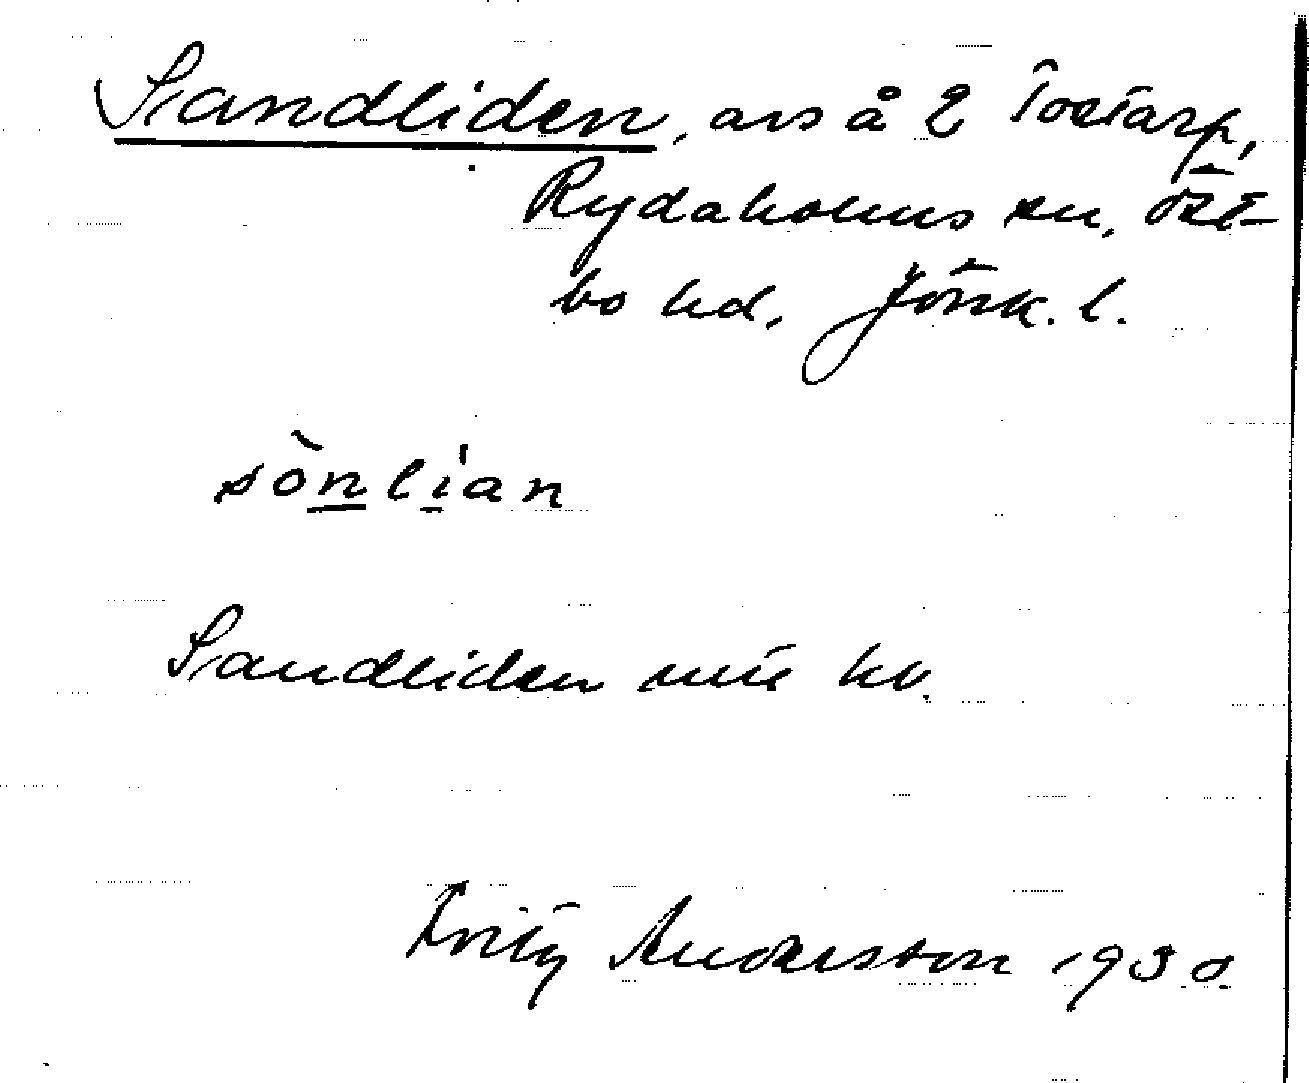 Sandliden, avs å 2 Tostarp,
Rydaholms sn, Öst-
bo hd, Jönk. l.
sònlian
Sandliden mtt kv.
Fritz Andersson 1930